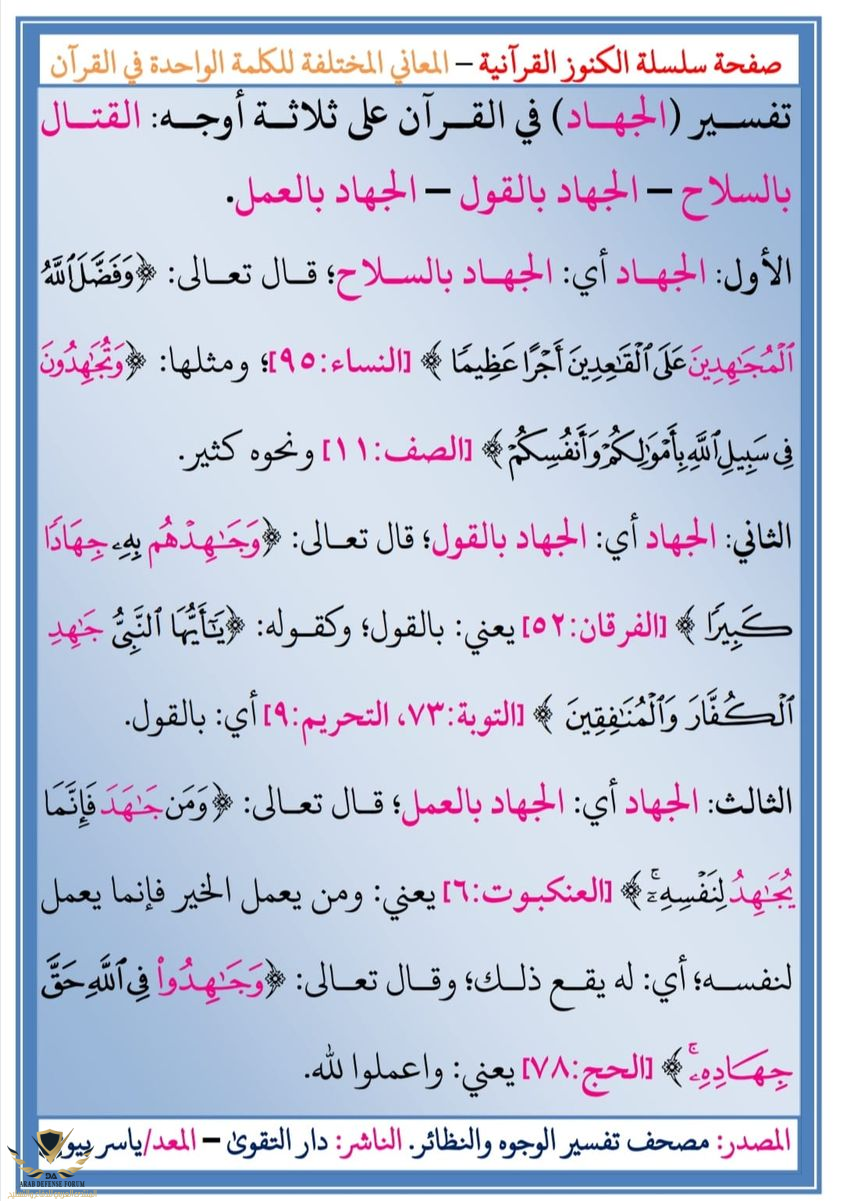 صفحة سلسلة الكنوز القرآنية – المعاني المختلفة للكلمة الواحدة في القرآن
تفسير (الجهاد) في القرآن على ثلاثة أوجه: القتال
بالسلاح – الجهاد بالقول – الجهاد بالعمل.
الأول: الجهاد أي: الجهاد بالسلاح؛ قال تعالى: ﴿وَفَضَّلَ ٱللَّهُ
ٱلْمُجَٰهِدِينَ عَلَى ٱلْقَٰعِدِينَ أَجْرًا عَظِيمًا ﴾ [النساء:٩٥]؛ ومثلها: ﴿وَتُجَٰهِدُونَ
فِى سَبِيلِ ٱللَّهِ بِأَمْوَٰلِكُمْ وَأَنفُسِكُمْ﴾ [الصف:١١] ونحوه كثير.
الثاني: الجهاد أي: الجهاد بالقول؛ قال تعالى: ﴿وَجَٰهِدْهُم بِهِۦ جِهَادًا
كَبِيرًا ﴾ [الفرقان:٥٢] يعني: بالقول؛ وكقوله: ﴿يَٰٓأَيُّهَا ٱلنَّبِىُّ جَٰهِدِ
ٱلْكُفَّارَ وَٱلْمُنَٰفِقِينَ ﴾ [التوبة:٧٣، التحريم:٩] أي: بالقول.
الثالث: الجهاد أي: الجهاد بالعمل؛ قال تعالى: ﴿وَمَن جَٰهَدَ فَإِنَّمَا
يُجَٰهِدُ لِنَفْسِهِۦٓ ۚ﴾ [العنكبوت:٦] يعني: ومن يعمل الخير فإنما يعمل
لنفسه؛ أي: له يقع ذلك؛ وقال تعالى: ﴿وَجَٰهِدُوا۟ فِى ٱللَّهِ حَقَّ
جِهَادِهِۦ ۚ﴾ [الحج:٧٨] يعني: واعملوا لله.
المصدر: مصحف تفسير الوجوه والنظائر. الناشر: دار التقوىٰ – المعد/ياسر
DA
ARAB DEFENSE FORUM